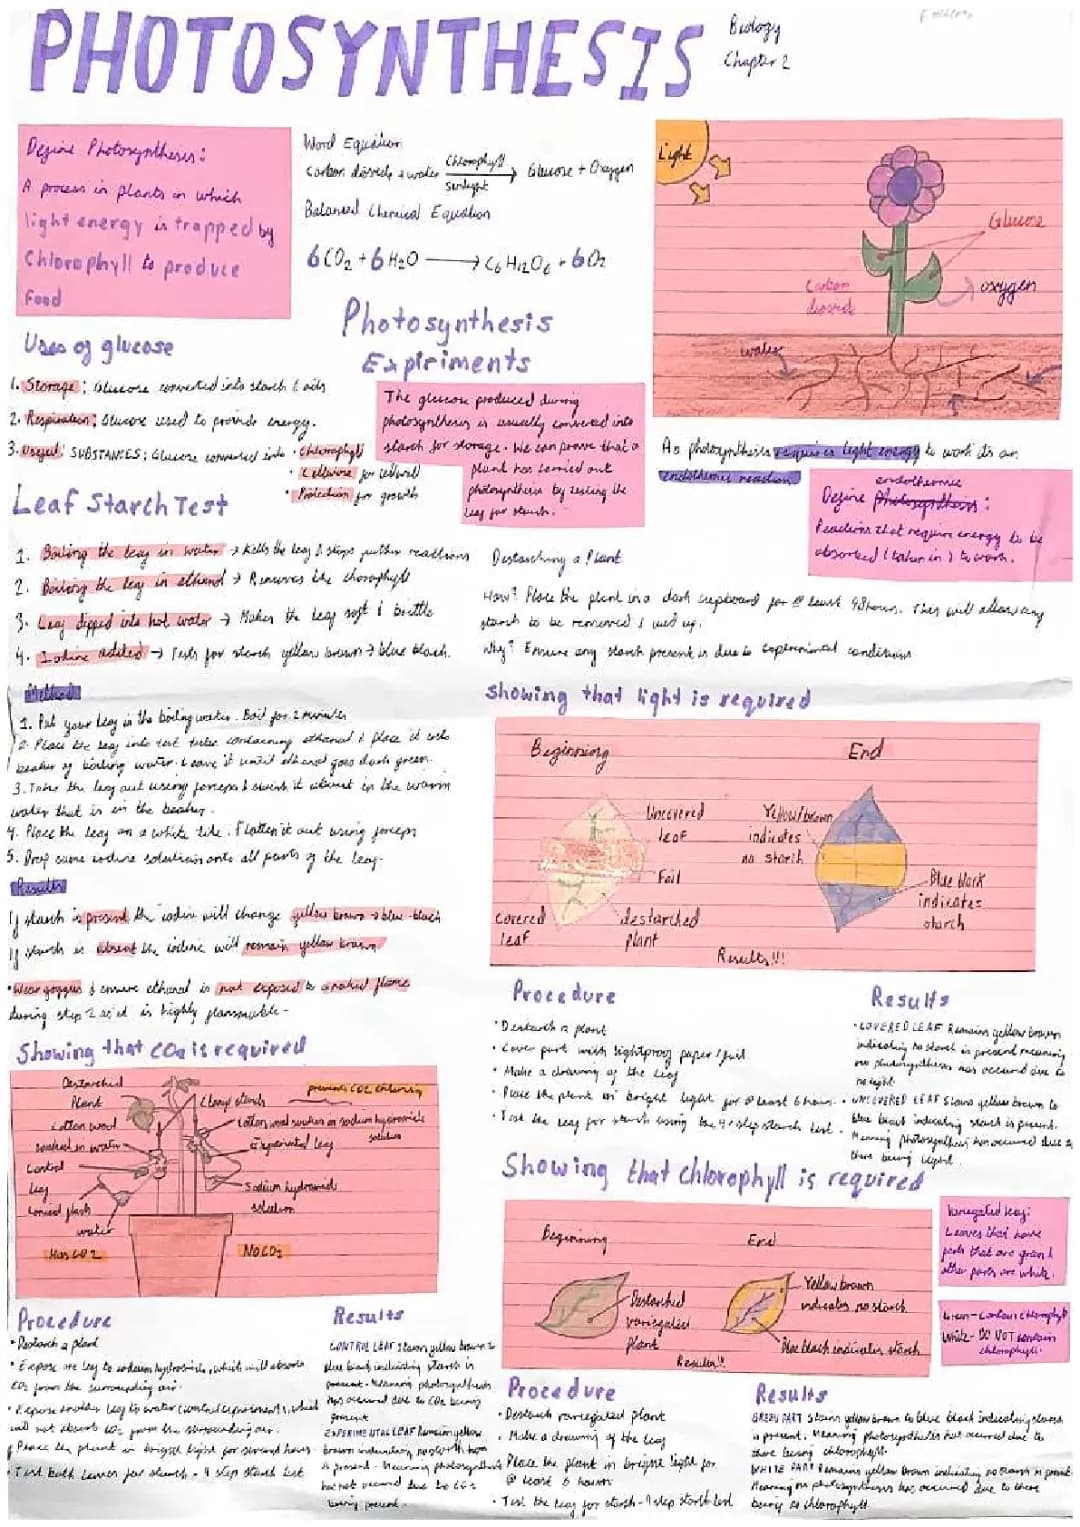 PHOTOSYNTHESIS
Biology
Chapter 2
Define Photosynthesis:
A process in plants in which
light energy is trapped by
Chlorophyll to produce
Food
Word Equation
Carbon dioxide + water Chlorophyll → Glucose + Oxygen
Sunlight
Balanced Chemical Equation
6CO2 + 6H2O → C6H12O6 + 6O2
Light
Glucose
Carbon
dioxide
oxygen
water
Uses of glucose
1. Storage: Glucose converted into starch & oils
2. Respiration: Glucose used to provide energy.
3. Useful SUBSTANCES: Glucose converted into • Chlorophyll
• Cellulose for cell wall
• Protection for growth
Photosynthesis
Expiriments
The glucose produced during
photosynthesis is usually converted into
starch for storage. We can prove that a
plant has carried out
photosynthesis by testing the
leaf for starch.
As photosynthesis requires light energy to work its an
endothermic reaction
endothermic
Define photosynthesis:
Reactions that require energy to be
absorbed (taken in) to work.
Leaf Starch Test
1. Boiling the leaf in water → kills the leaf & stops further reactions
2. Boiling the leaf in ethanol → Removes the chorophyll
3. Leaf dipped into hot water → Makes the leaf soft & brittle
4. Iodine added → Tests for starch yellow brown → blue black.
Destarching a Plant
How? Place the plant in a dark cupboard for @ least 48hours. This will allow any
starch to be removed & used up.
Why? Ensure any starch present is due to experimental conditions
Method
1. Put your leaf in the boiling water. Boil for 2 minutes
2. Place the leaf into test tube containing ethanol & place it into
beaker of boiling water. Leave it until ethanol goes dark green.
3. Take the leaf out using forceps & swish it about in the warm
water that is in the beaker.
4. Place the leaf on a white tile. Flatten it out using forceps
5. Drop some iodine solution onto all parts of the leaf.
Results
If starch is present the iodine will change yellow brown → blue-black
If starch is absent the iodine will remain yellow brown
• Wear goggles & ensure ethanol is not exposed to a naked flame
during step 2 as it is highly flammable.
Showing that light is required
Beginning
End
Uncovered
leaf
Foil
covered
leaf
destarched
plant
Yellow/brown
indicates
no starch
Blue black
indicates
starch
Results!!!
Procedure
• Destarch a plant
• Cover part with lightproof paper/foil
• Make a drawing of the leaf
• Place the plant in bright light for @ least 6 hours.
• Test the leaf for starch using the 4 step starch test.
Results
• COVERED LEAF Remains yellow brown
indicating no starch is present meaning
no photosynthesis has occured due to
no light.
• UNCOVERED LEAF Stains yellow brown to
blue black indicating starch is present.
Meaning photosynthesis has occured due to
there being light.
Showing that CO2 is required
Destarched
Plant
Clamp stands
prevents CO2 entering
Cotton wool
soaked in water
Cotton wool soaken in sodium hydroxide
solution
Experimental leaf
Control
leaf
Conical flask
water
Sodium hydroxide
solution
Has CO2
No CO2
Procedure
• Destarch a plant
• Expose one leaf to sodium hydroxide, which will absorb
CO2 from the surrounding air.
• Expose another leaf to water (control experiment), which
will not absorb CO2 from the surrounding air.
• Place the plant in bright light for several hours
• Test both leaves for starch - 4 step starch test
Results
CONTROL LEAF Stains yellow brown to
blue black indicating starch is
present. Meaning photosynthesis
has occured due to CO2 being
present
EXPERIMENTAL LEAF Remains yellow
brown indicating no starch
is present. Meaning photosynthesis
has not occured due to no CO2
being present.
Showing that chlorophyll is required
Beginning
End
Destarched
variegated
plant
Yellow brown
indicates no starch
Blue black indicates starch
Results!!
Variegated leaf:
Leaves that have
parts that are green &
other parts are white.
Green - Contains chlorophyll
White - DO NOT contain
chlorophyll.
Procedure
• Destarch variegated plant
• Make a drawing of the leaf
Place the plant in bright light for
@ least 6 hours
• Test the leaf for starch - 4 step starch test
Results
GREEN PART Stains yellow brown to blue black indicating starch
is present. Meaning photosynthesis has occured due to
there being chlorophyll.
WHITE PART Remains yellow brown indicating no starch is present.
Meaning no photosynthesis has occured due to there
being no chlorophyll.